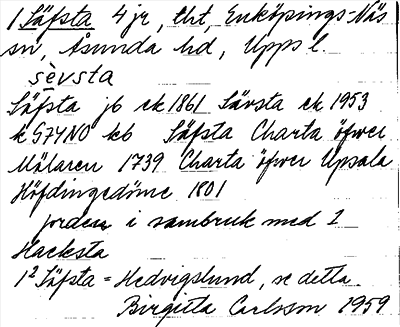 1 Säfsta 4 jr, tht, Enköpings-Näs
sn, Åsunda hd, Upps l.
sèvsta
Säfsta jb ek 1861 Sävsta ek 1953
k G74NO kb Säfsta Charta öfwer
Mälaren 1739 Charta öfwer Upsala
Höfdingedöme 1801
jorden i sambruk med 2
Hacksta
1² Säfsta = Hedvigslund, se detta
Birgitta Carlsson 1959